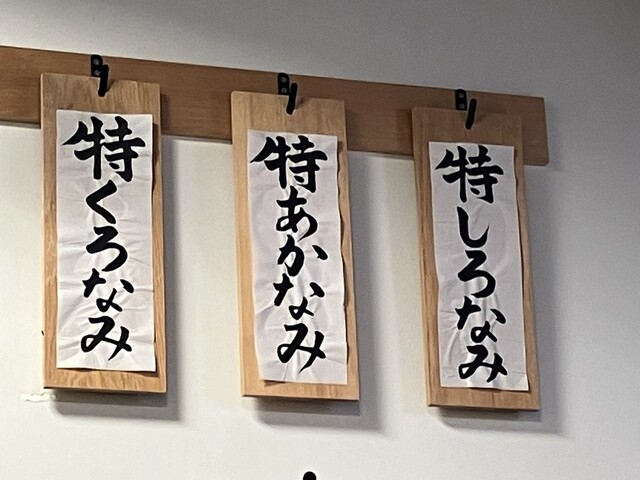 特くろなみ
特あかなみ
特しろなみ